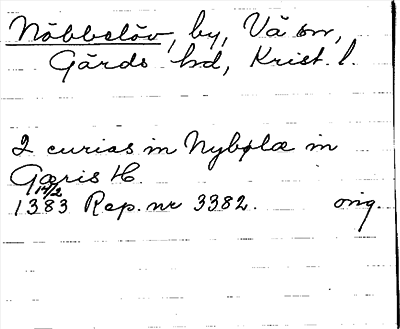 Näbbelöv, by, Vä sn,
Gärds hd, Krist. l.
2 curias in Nybølæ in
Gæris H.
14/2
1383 Rep. nr 3382. orig.